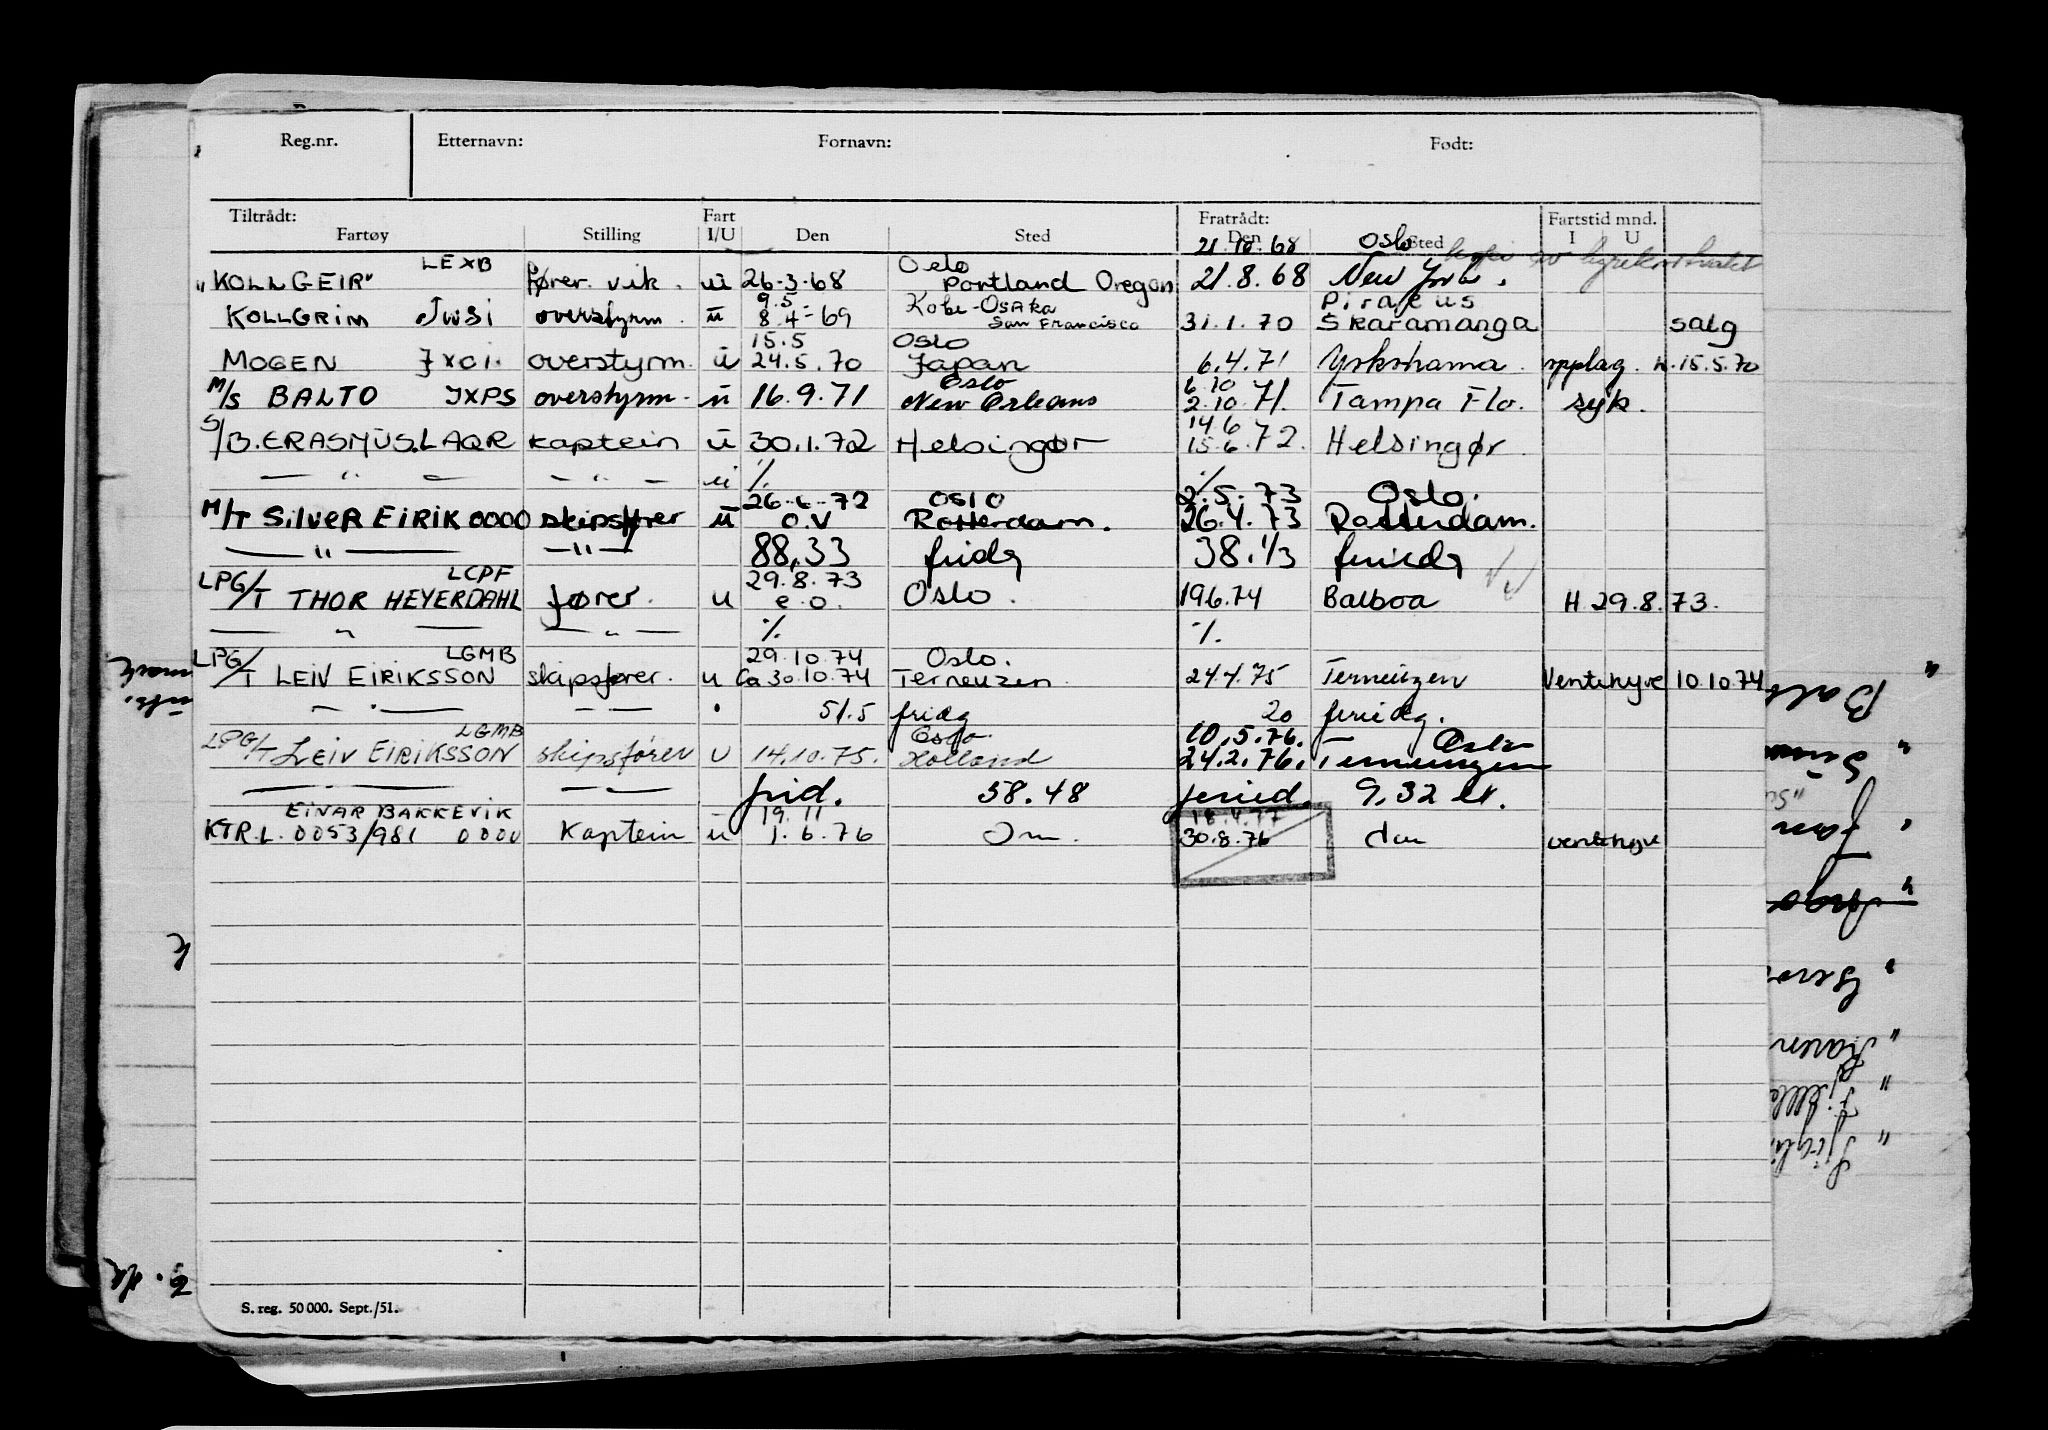 Reg.nr. Etternavn: Fornavn: Født:
Tiltrådt: Fart Fratrådt: Fartstid mnd.
Fartøy Stilling I/U Den Sted Den Sted I U
21.10.68 Oslo
LEXB Oslo
"KOLLGEIR" fører. vik. ü 26.3.68 Portland Oregon 21.8.68 New York.
9.5 Kobe-Osaka Piraeus
KOLLGRIM JWSI overstyrm. ü 8.4-69 San Francisco 31.1.70 Skaramanga salg
15.5 Oslo
MOGEN JXCI. overstyrm. ü 24.5.70 Japan 6.4.71 Yokohama. opplag. H.15.5.70
Oslo 6.10
M/S BALTO JXPS overstyrm. ü 16.9.71 New Orleans 2.10.71. Tampa Flo. syk.
14.6
S/B. ERASMUS. LAQR Kaptein ü 30.1.72 Helsingør 15.6.72. Helsingør
— " — — " — ü % %
26.6.72 Oslo 2.5.73 Oslo.
M/T SILVER EIRIK 0000 skipsfører ü o.v Rotterdam. 26.4.73 Rotterdam.
— " — — " — 88,33 fridg 38.1/3 feriedg
LCPF 29.8.73
LPG/T THOR HEYERDAHL fører. u e.o. Oslo. 19.6.74 Balboa H.29.8.73.
— " — — " — % %.
LGMB 29.10.74 Oslo.
LPG/T LEIV EIRIKSSON skipsfører. u Ca 30.10.74 Terneuzen 24.4.75 Terneuzen Ventehyre 10.10.74
— " — — " — 51.5 fridg 20 feriedg.
LGMB Oslo. 10.5.76. Oslo
LPG/T LEIV EIRIKSSON skipsfører u 14.10.75. Holland 24.2.76. Terneuzen
— — frid. 58.48 feried. 9,32
EINAR BAKKEVIK 19.11 18.4.77
KTR.L. 0053/981 0000 Kaptein ü 1.6.76 30.8.76 ventehyre
S. reg. 50 000. Sept./51.